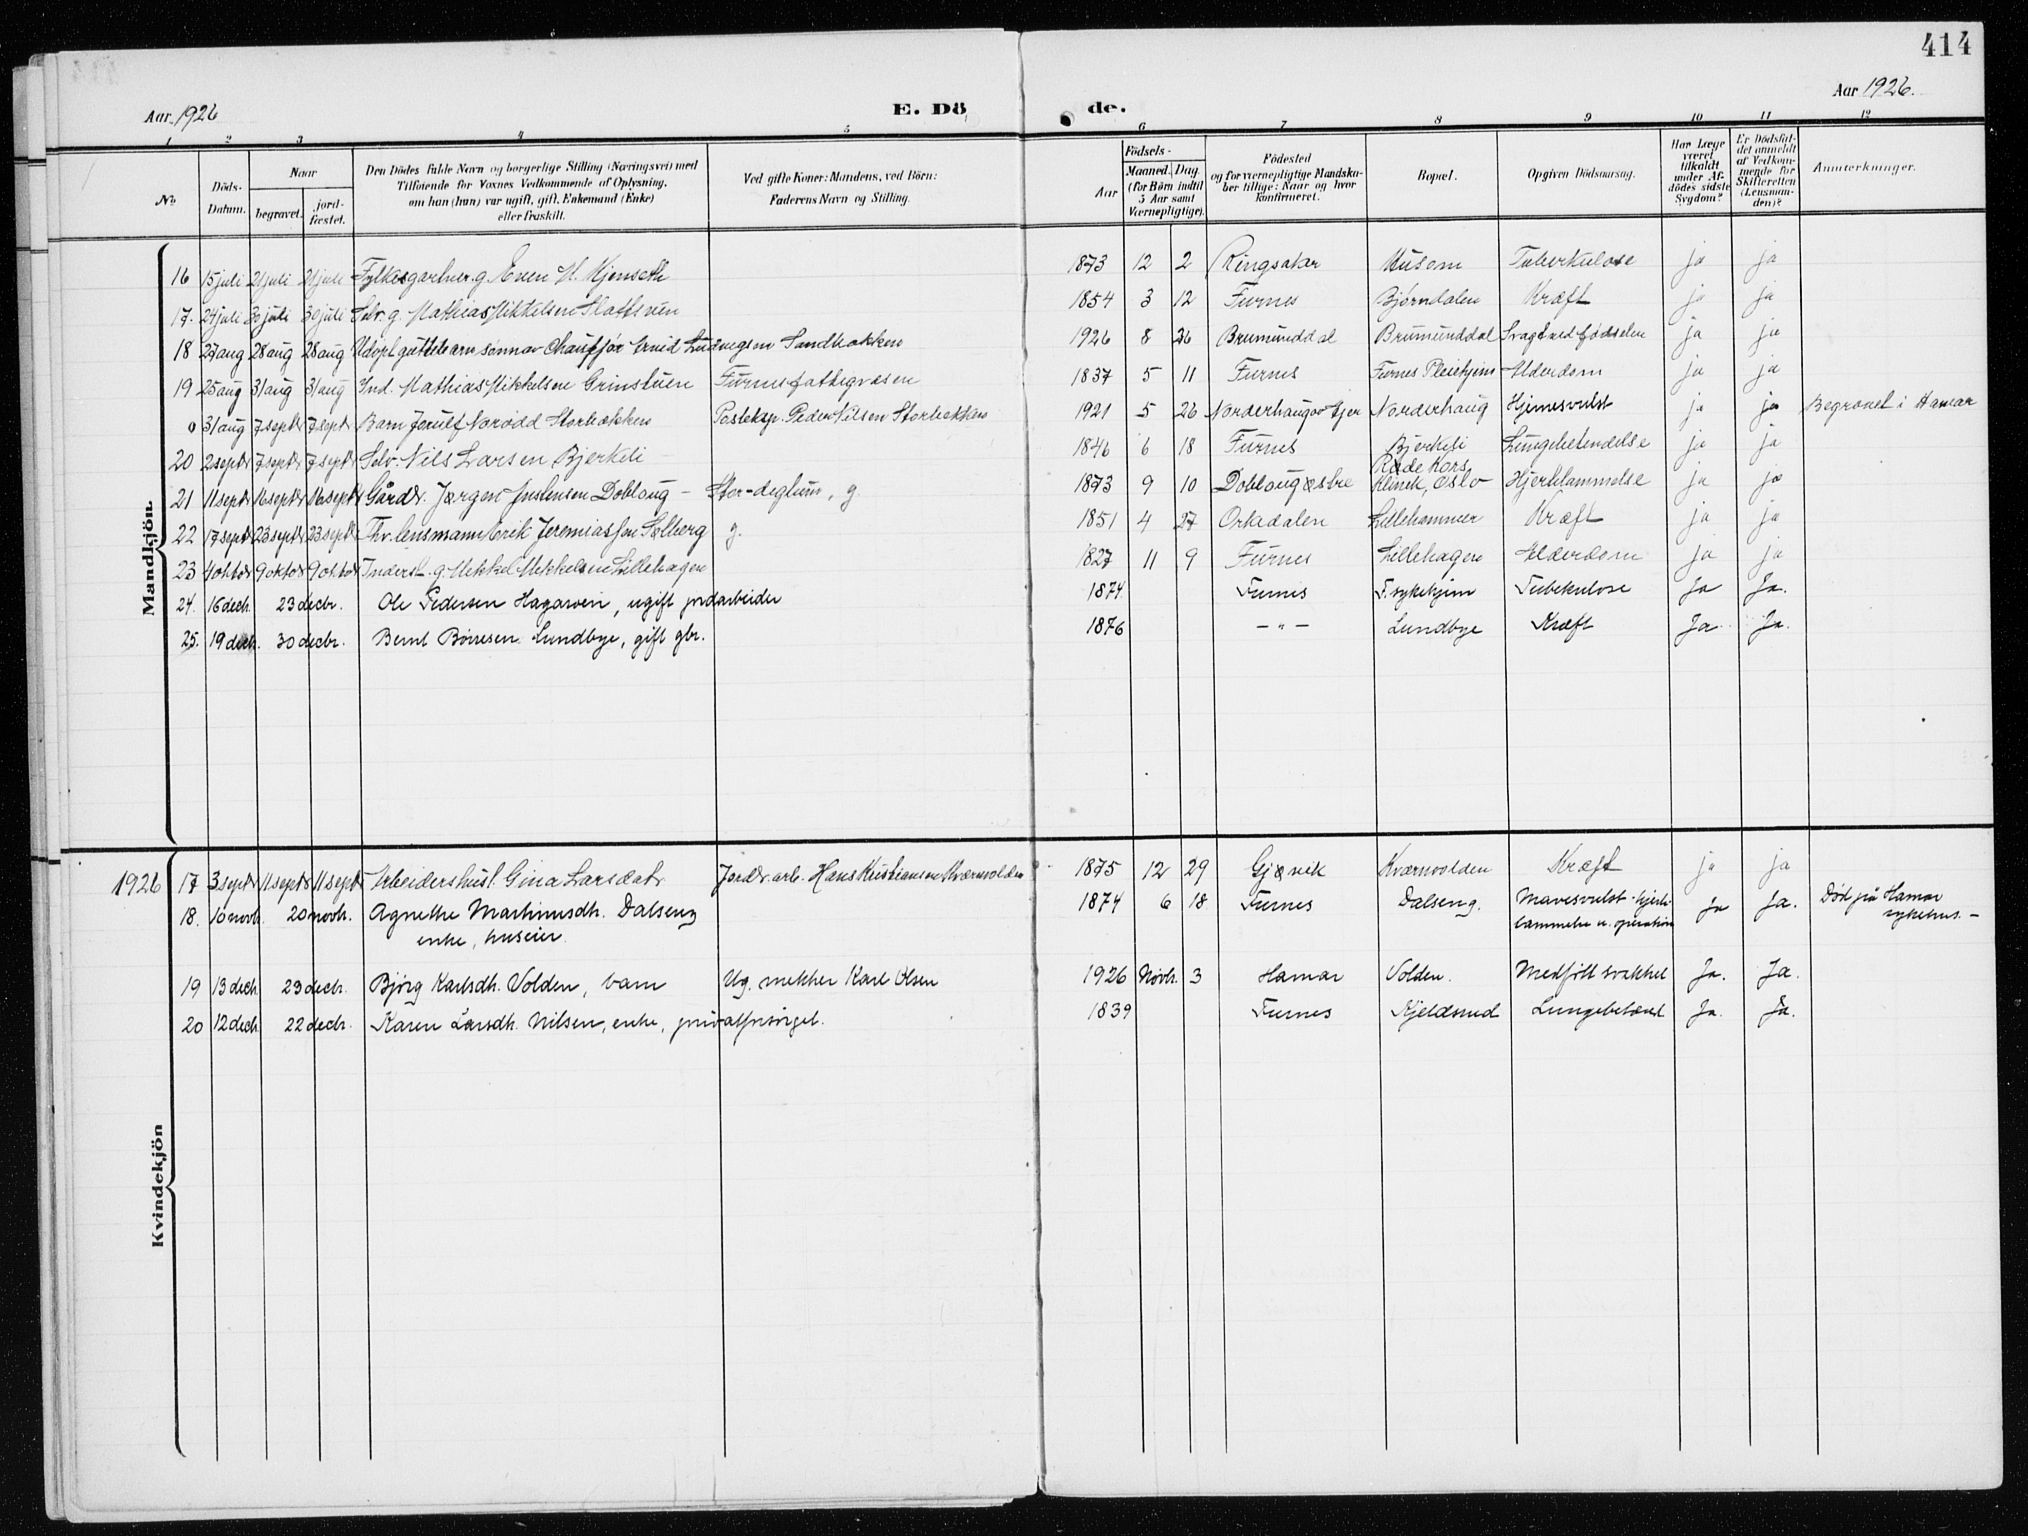 414
Aar 1926
E. Dö
de.
Aar 1926.
1 2 3 4 5 6 7 8 9 10 11 12
No.
Döds-Datum.
Naar
begravet.
jord-fæstet.
Den Dödes fulde Navn og borgerlige Stilling (Næringsvei) med
Tilföiende for Voxnes Vedkommende af Oplysning,
om han (hun) var ugift, gift, Enkemand (Enke)
eller fraskilt.
Ved gifte Koner: Mandens, ved Börn:
Faderens Navn og Stilling.
Födsels-
Aar
Maaned. Dag.
(for Börn indtil
5 Aar samt
Værnepligtige).
Födested
og for værnepligtige Mandska-
ber tillige: Naar og hvor
konfirmeret.
Bopæl.
Opgiven Dödsaarsag.
Har Læge
været
tilkaldt
under Af-
dödes sidste
Sygdom?
Er Dödsfal-
det anmeldt
af Vedkom-
mende for
Skifteretten
(Lensman-
den)?
Anmerkninger.
Mandkjön.
16 15 juli 21 juli 21 juli Fylkesgartner. g. Even M. Kjenseth 1873 12 2 Ringsaker Husom Tuberkulose ja ja
17. 24 juli 30 juli 30 juli Selv. g. Mathias Mikkelsen 1854 3 12 Furnes Bjørndalen Kræft ja ja
18 27 aug 28 aug 28 aug Udøpt guttebarn sønn av Chauffør Ludvigsen Sandbakken 1926 8 26 Brumunddal Brumunddal Svagt ved fødselen ja ja
19 25 aug 31 aug 31 aug Ind. Mathias Mikkelsen Grinstuen Furnes fattigvæsen 1837 5 11 Furnes Furnes Pleiehjem Alderdom ja ja
0 31 aug 7 sept 7 sept Barn Storbækken Posteksp. Peder Nilsen Storbækken 1921 5 26 Norderhaug Norderhaug Hjernesvulst ja ja Begravet i Hamar
20 2 septr 7 septr 7 sept Selv. Nils Larsen Bjerkeli 1846 6 18 Furnes Bjerkeli Lungebetændelse ja ja
21 11 septr 16 septr 16 septr Gårdbr. Jørgen Justensen Doblaug - Stor-deglum, g. 1873 9 10 Doblaug østre Røde Kors Klinik, Oslo Hjertelammelse ja ja
22 17 septr 23 septr 23 septr Fhv. lensmann Erik Jeremiassen Solberg g. 1851 4 27 Orkdalen Lillehammer Kræft ja ja
23 4 oktbr 9 oktbr 9 oktbr Inderst. g. Mikkel Mikkelsen Lillehagen 1827 11 9 Furnes Lillehagen Alderdom ja ja
24. 16 decb. 23 decbr. Ole Pedersen Hagaroen, ugift jordarbeider 1874. Furnes F. sykehjem Tuberkulose Ja Ja.
25. 19 decb. 30 decbr. Bernt Børresen Lundbye, gift gbr. 1876 — " — Lundbye Kræft Ja Ja.
Kvindekjön
1926 17 3 septr 11 septr 11 septr Arbeidershust. Gina Larsdatr Jordbr. arb. Hans Kristiansen Kværnvolden 1875 12 29 Gjøvik Kværnvolden Kræft ja ja
18. 10 novb. 20 novb. Agnethe Martinusdh. Dalseng 1874 6 18 Furnes Dalseng. Mavesvulst - hjerte- Ja Ja. Död på Hamar
enke, huseier. lammelse u. operation sykehus. -
19 13 decb. 23 decbr. Bjørg Karlsdh. Volden, barn Ug. mekker Karl Olsen 1926 Novb. 3 Hamar Volden. Medfött svakhet Ja. Ja.
20 12 decb. 22 decbr. Karen Larsdh. Nilsen, enke, privatforsörget. 1839 Furnes Kjeldsrud Lungebetænd Ja. Ja.